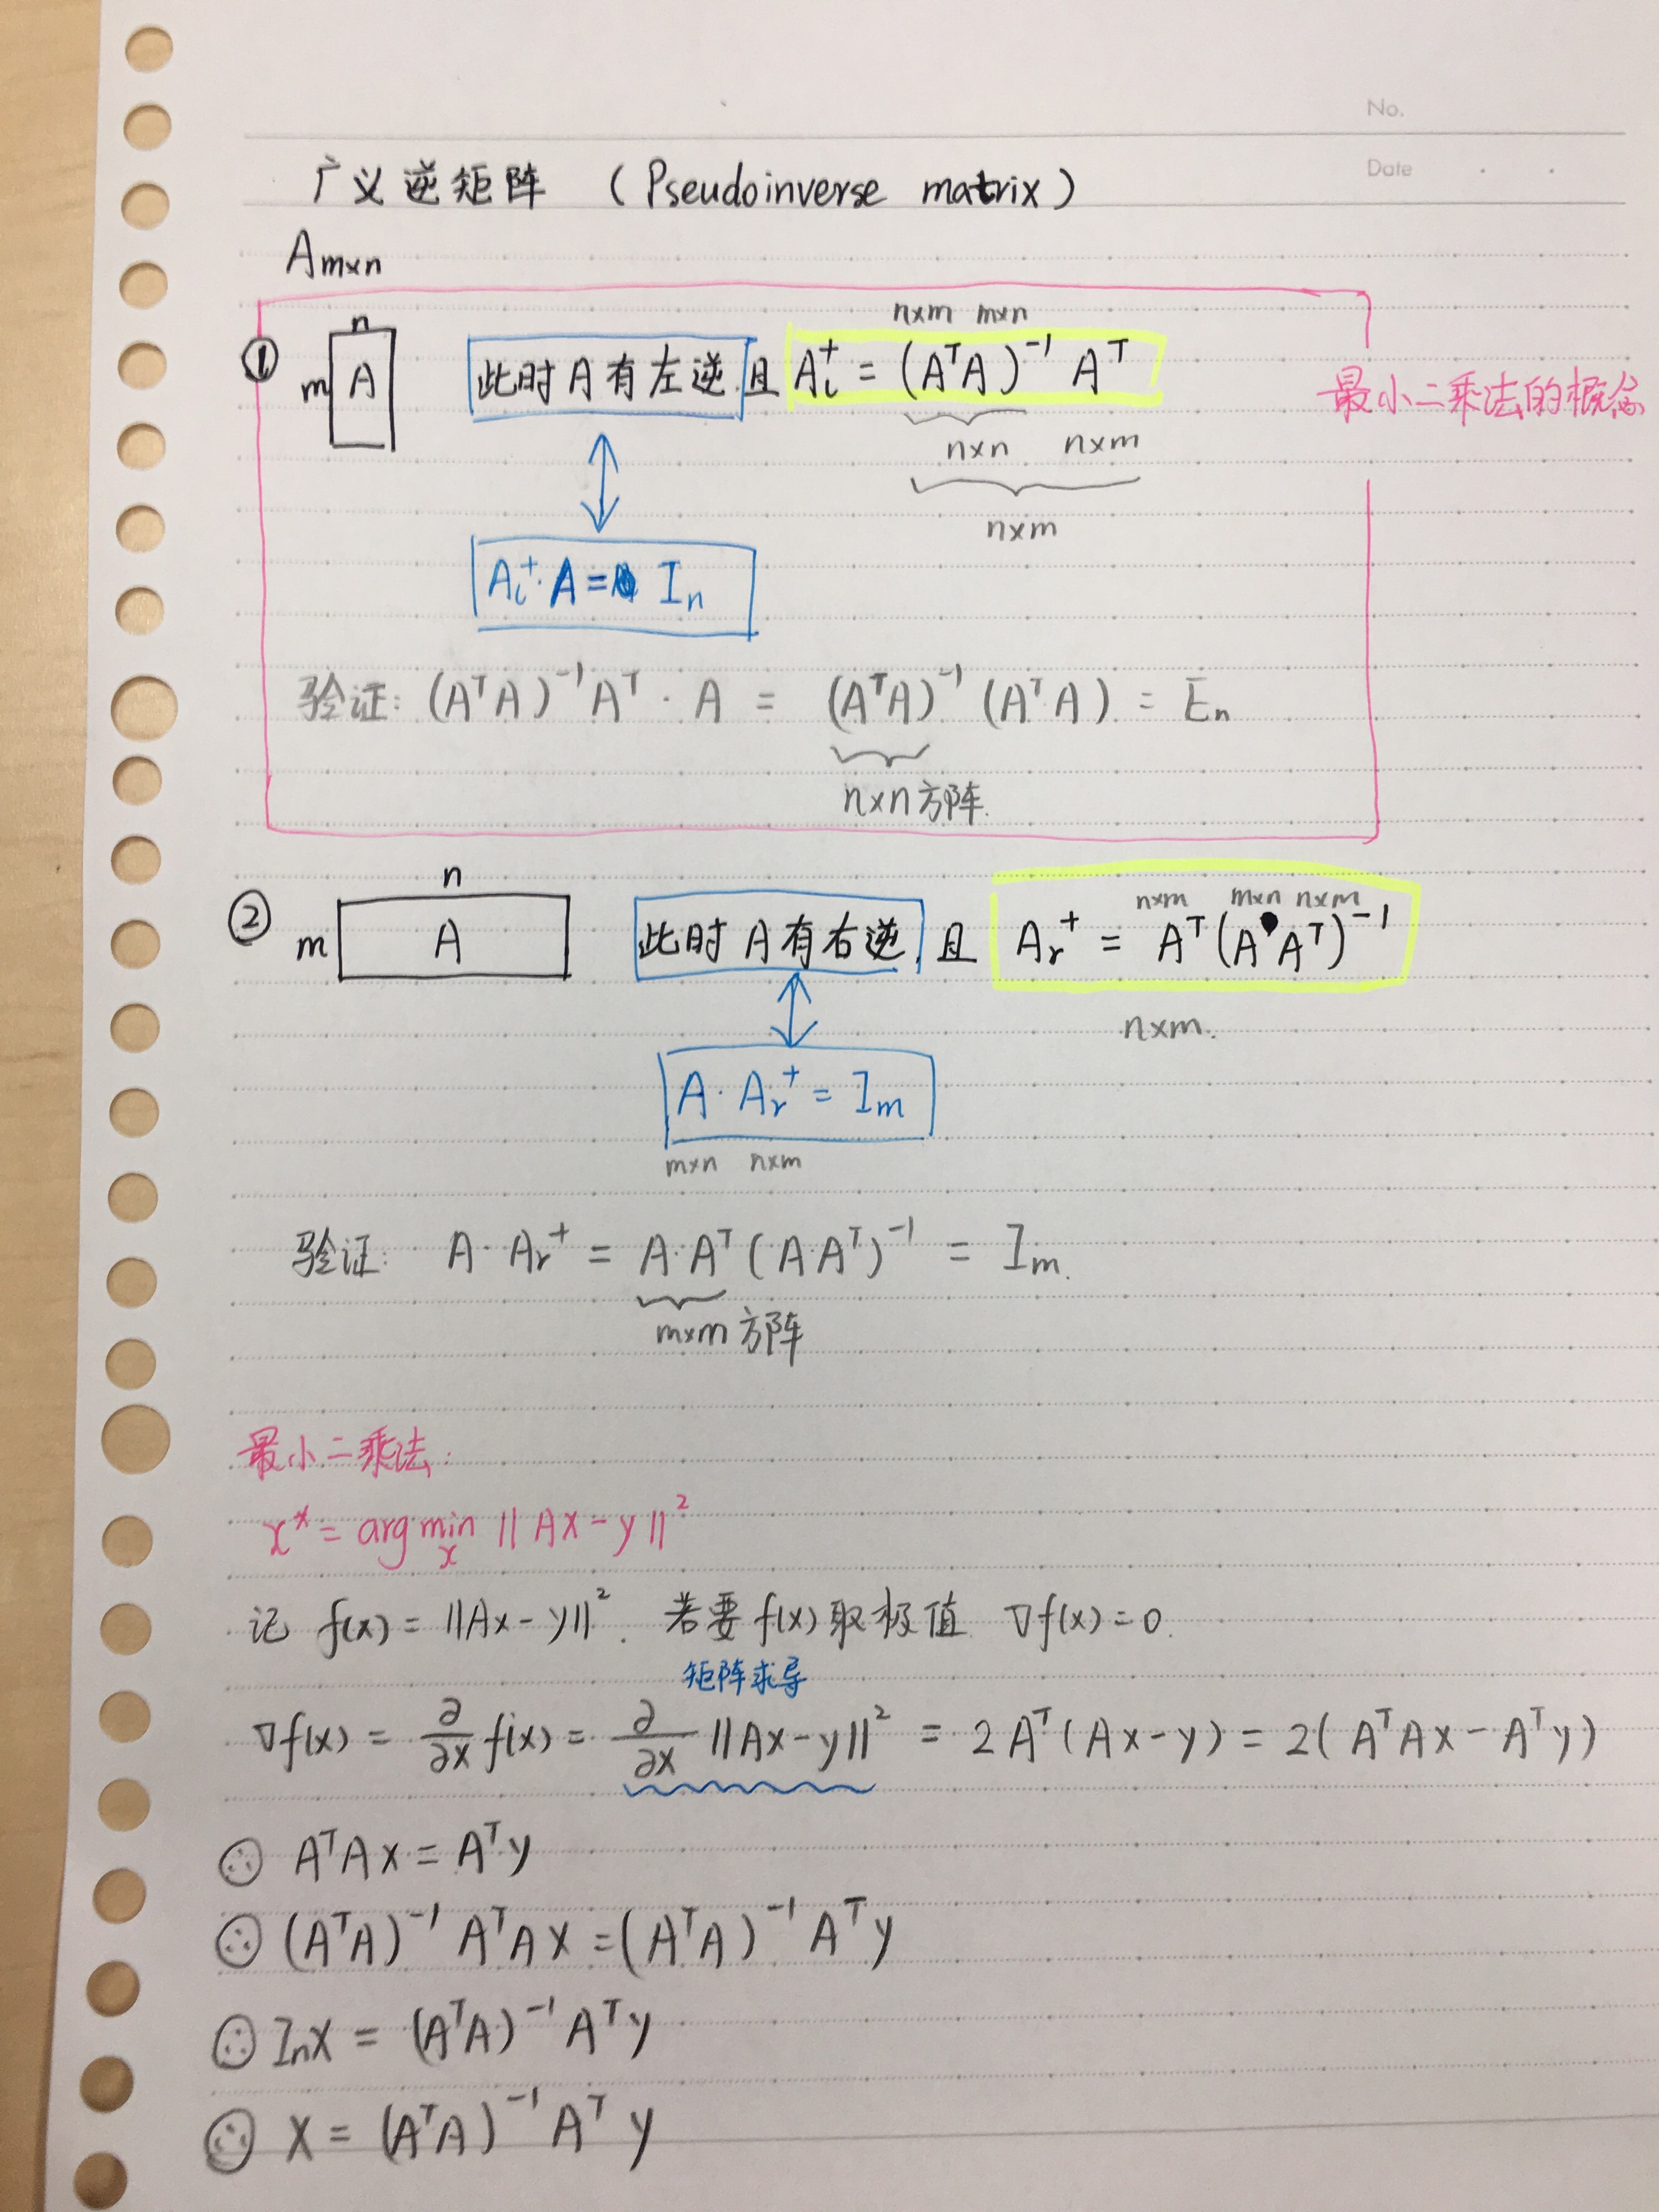 No.
Date
广义逆矩阵 (Pseudoinverse matrix)
Am×n
n×m m×n
① n m A 此时A有左逆 且 Aₗ⁺ = (AᵀA)⁻¹ Aᵀ
最小二乘法的概念
n×n n×m
n×m
Aₗ⁺·A = Iₙ
验证: (AᵀA)⁻¹Aᵀ · A = (AᵀA)⁻¹ (AᵀA) = Eₙ
n×n 方阵.
n
n×m m×n n×m
② m A 此时A有右逆, 且 Aᵣ⁺ = Aᵀ(A Aᵀ)⁻¹
n×m.
A · Aᵣ⁺ = Iₘ
m×n n×m
验证: A · Aᵣ⁺ = A·Aᵀ (A·Aᵀ)⁻¹ = Iₘ.
m×m 方阵
最小二乘法:
x* = arg min ‖Ax−y‖²
x
记 f(x) = ‖Ax−y‖². 若要f(x)取极值 ∇f(x)=0.
矩阵求导
∇f(x) = ∂/∂x f(x) = ∂/∂x ‖Ax−y‖² = 2Aᵀ(Ax−y) = 2(AᵀAx − Aᵀy)
∴ AᵀAx = Aᵀy
∴ (AᵀA)⁻¹ AᵀAx = (AᵀA)⁻¹ Aᵀy
∴ Iₙx = (AᵀA)⁻¹ Aᵀy
∴ x = (AᵀA)⁻¹ Aᵀ y